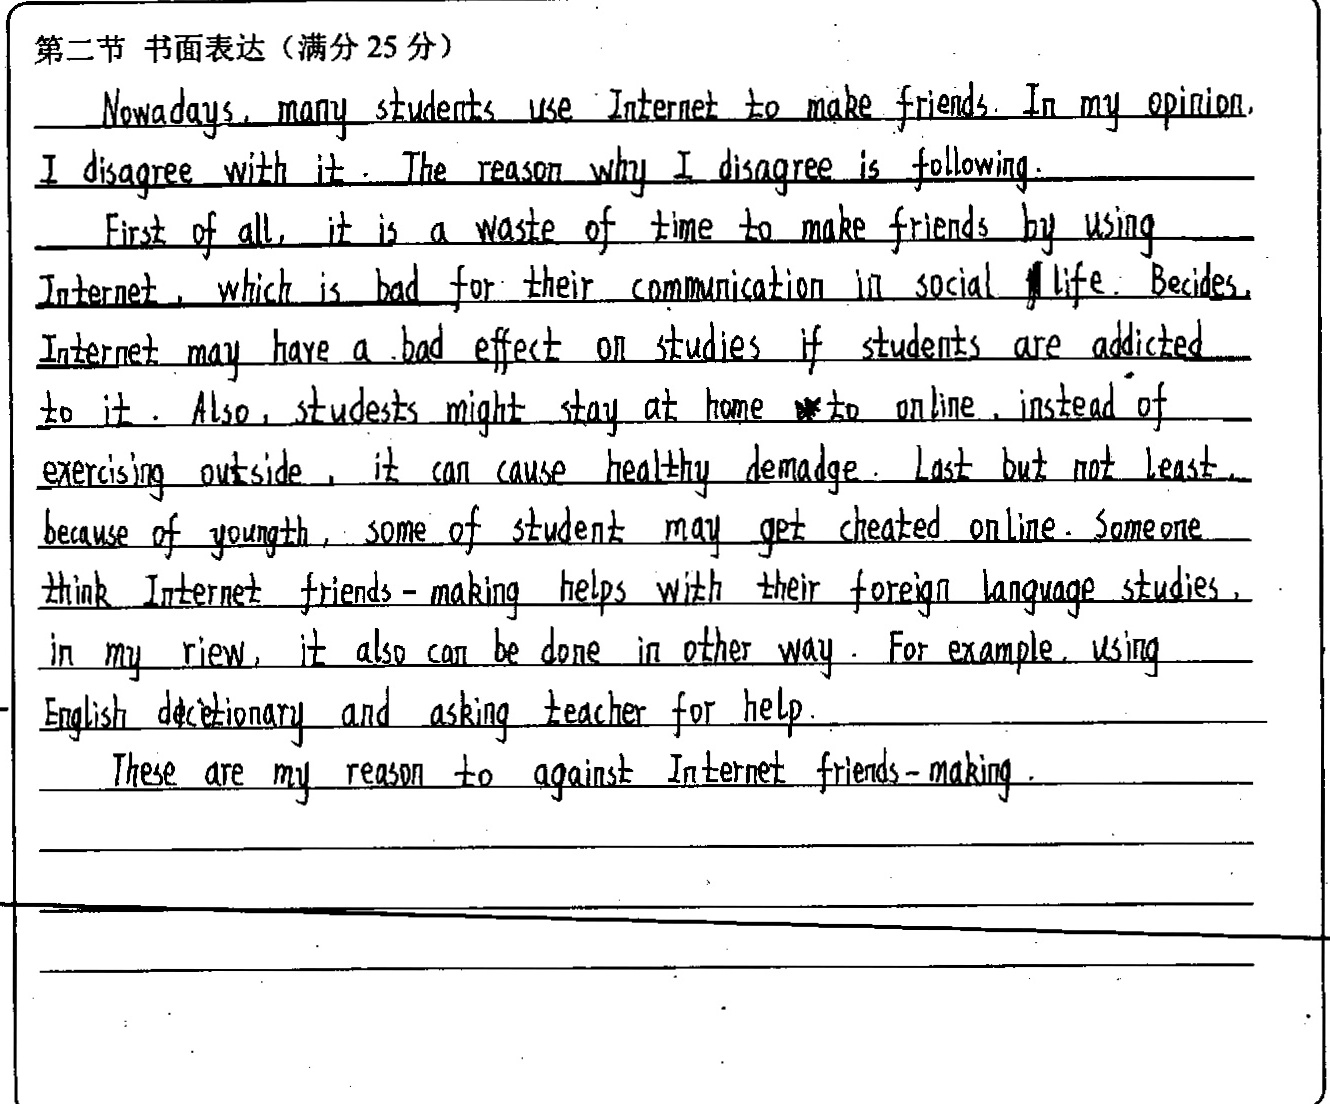 第二节 书面表达（满分 25 分）
Nowadays, many students use Internet to make friends. In my opinion,
I disagree with it. The reason why I disagree is following.
First of all, it is a waste of time to make friends by using
Internet, which is bad for their communication in social life. Becides,
Internet may have a bad effect on studies if students are addicted
to it. Also, studests might stay at home to online, instead of
exercising outside, it can cause healthy demadge. Last but not least,
because of youngth, some of student may get cheated online. Someone
think Internet friends-making helps with their foreign language studies,
in my riew, it also can be done in other way. For example, using
English dicetionary and asking teacher for help.
These are my reason to against Internet friends-making.